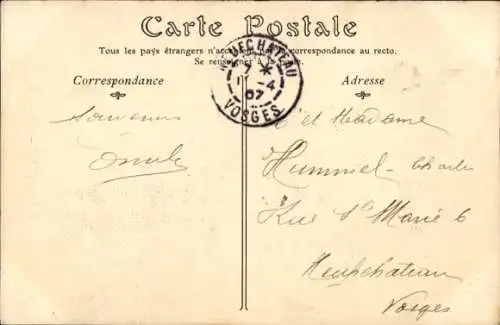 Carte Postale
Tous les pays étrangers n'acceptent pas la correspondance au recto.
Se renseigner à la Poste.
Correspondance
Adresse
NEUFCHATEAU
-4
07
VOSGES
Souvenir
et Madame
Hummel Charles
Rue Ste Marie 6
Neufchateau
Vosges